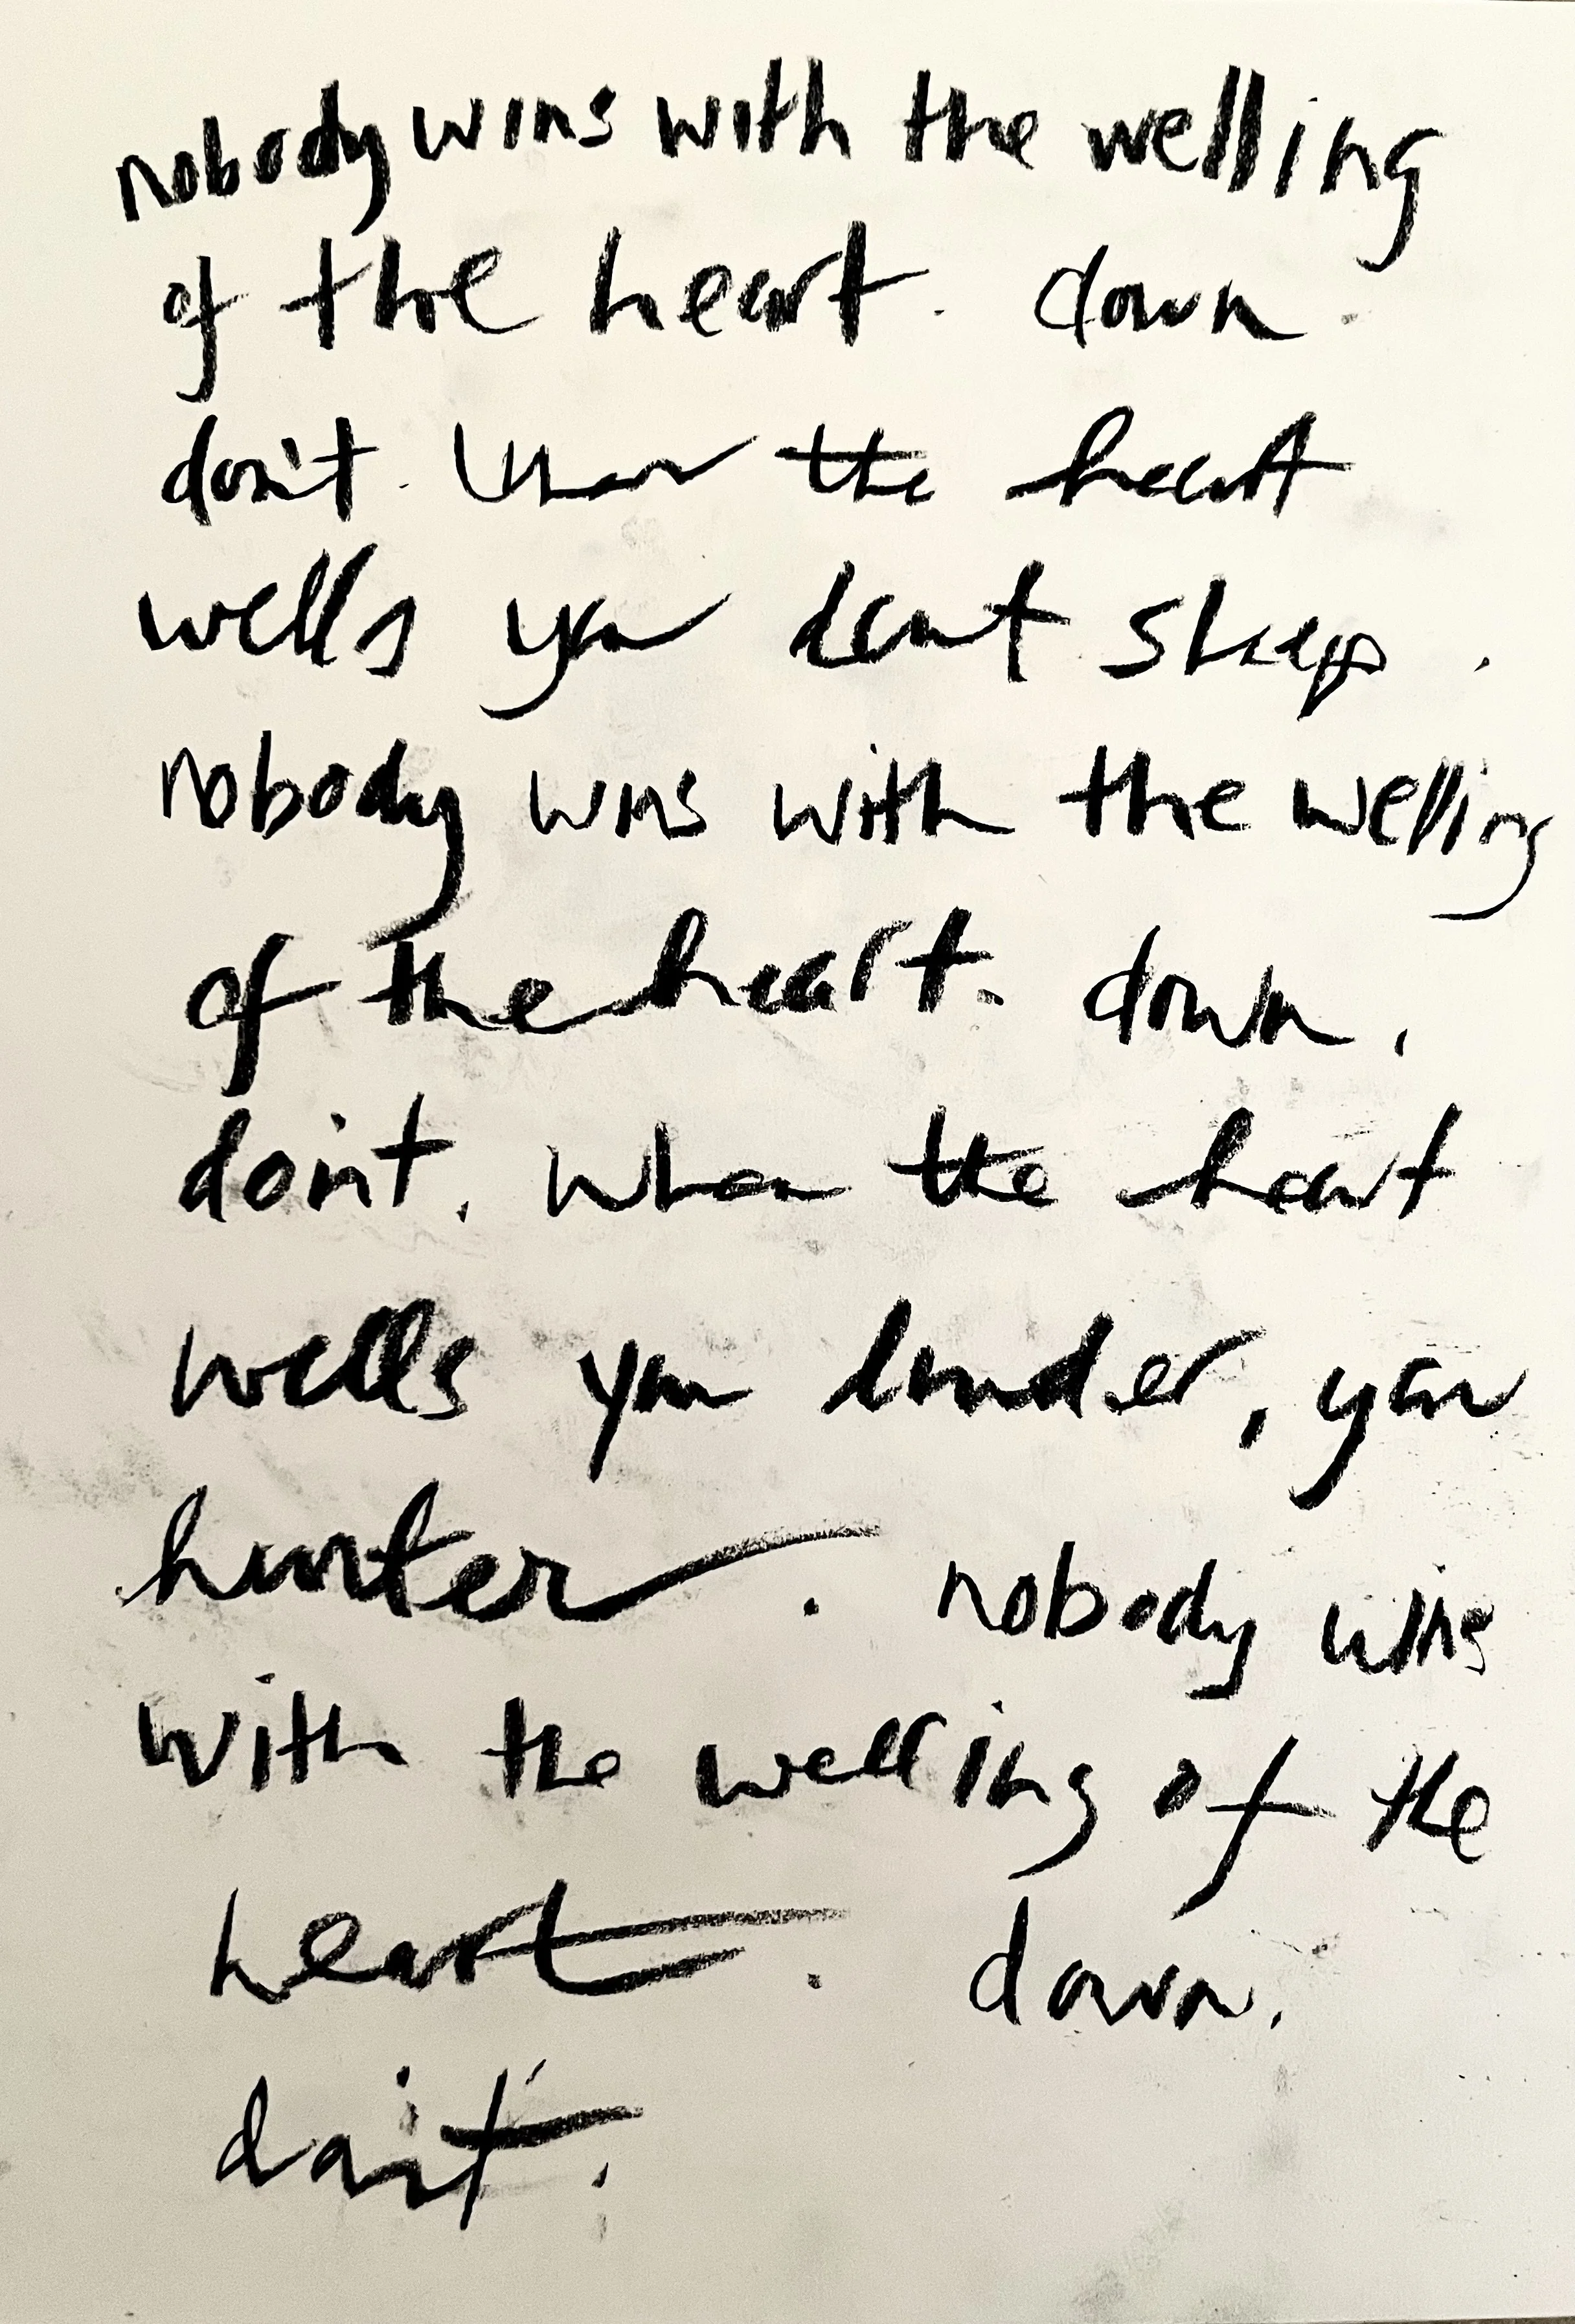 nobody wins with the welling
of the heart. down.
don't. when the heart
wells you don't sleep.
nobody wins with the welling
of the heart. down.
don't. when the heart
wells you louder, you
hunter. nobody wins
with the welling of the
heart. down.
don't.